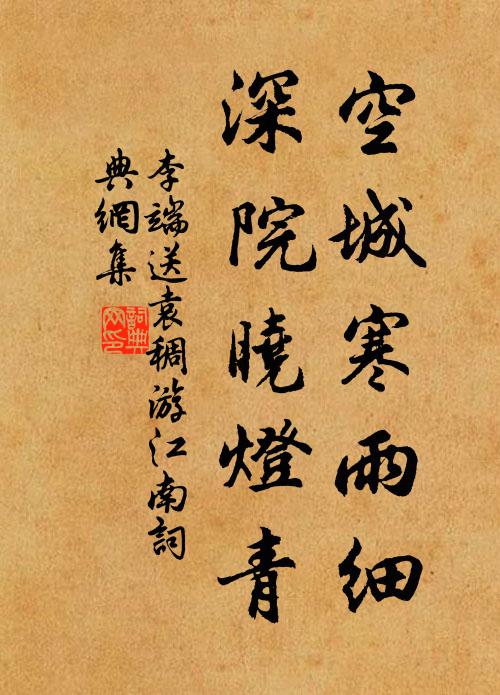 空城寒雨細
深院曉燈青
李端送袁稠游江南詞
典網集
詞典網印